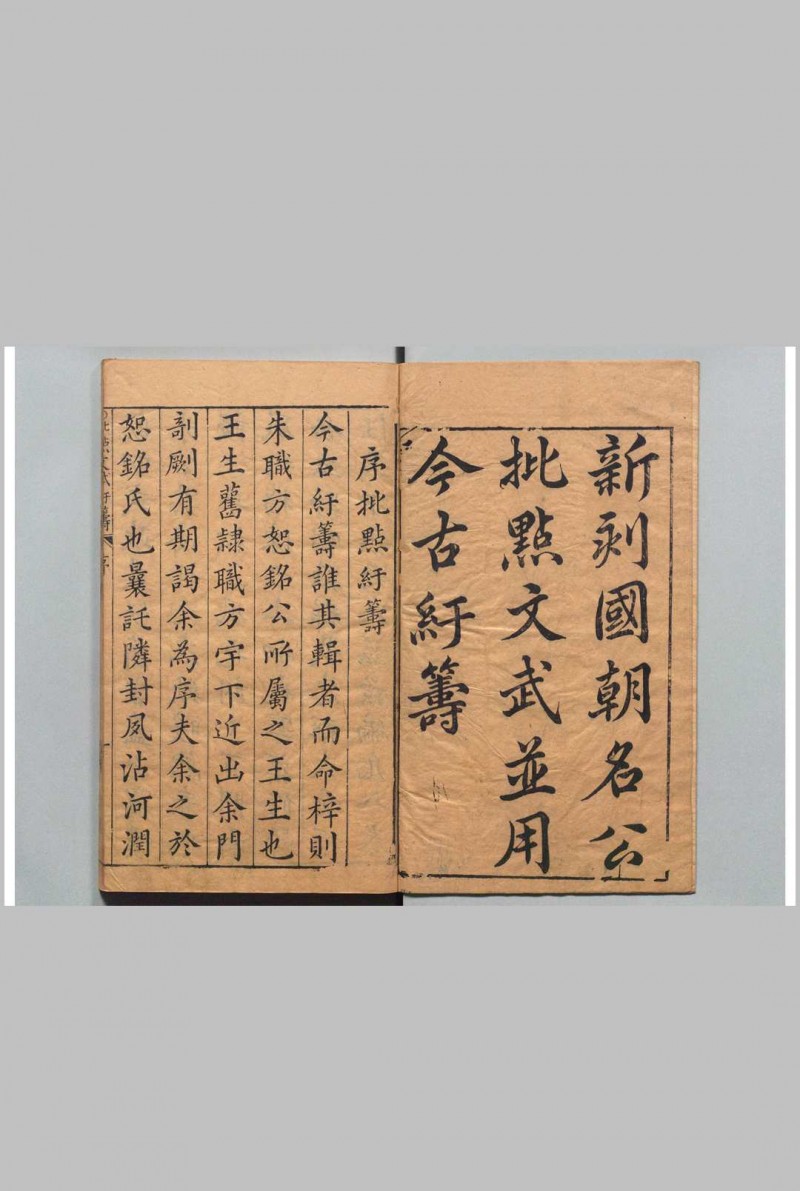 新刻國朝名公
批點文武並用
今古紆籌
序批點紆籌
今古紆籌誰其輯者而命梓則
朱職方恕銘公所屬之王生也
王生舊隷職方宇下近出余門
剞劂有期謁余為序夫余之於
恕銘氏也曩託隣封夙沾河潤
序